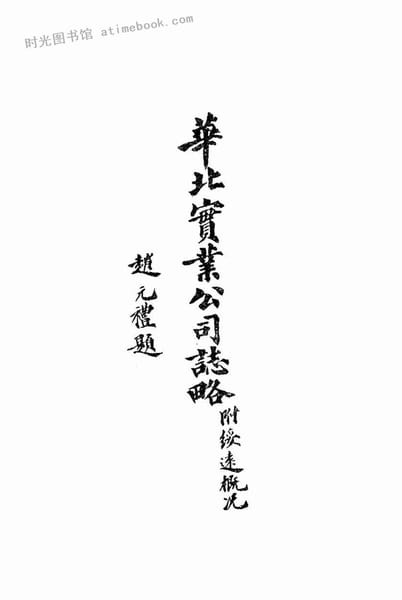 时光图书馆 atimebook.com
華北實業公司誌略
附綏遠概况
趙元禮題